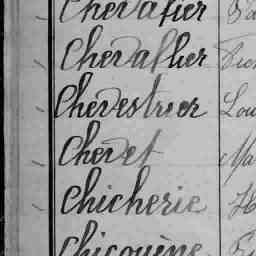 Chevalier
Chevallier
Chevestrier Lou
Chevet Ma
Chicherie
Chicouène